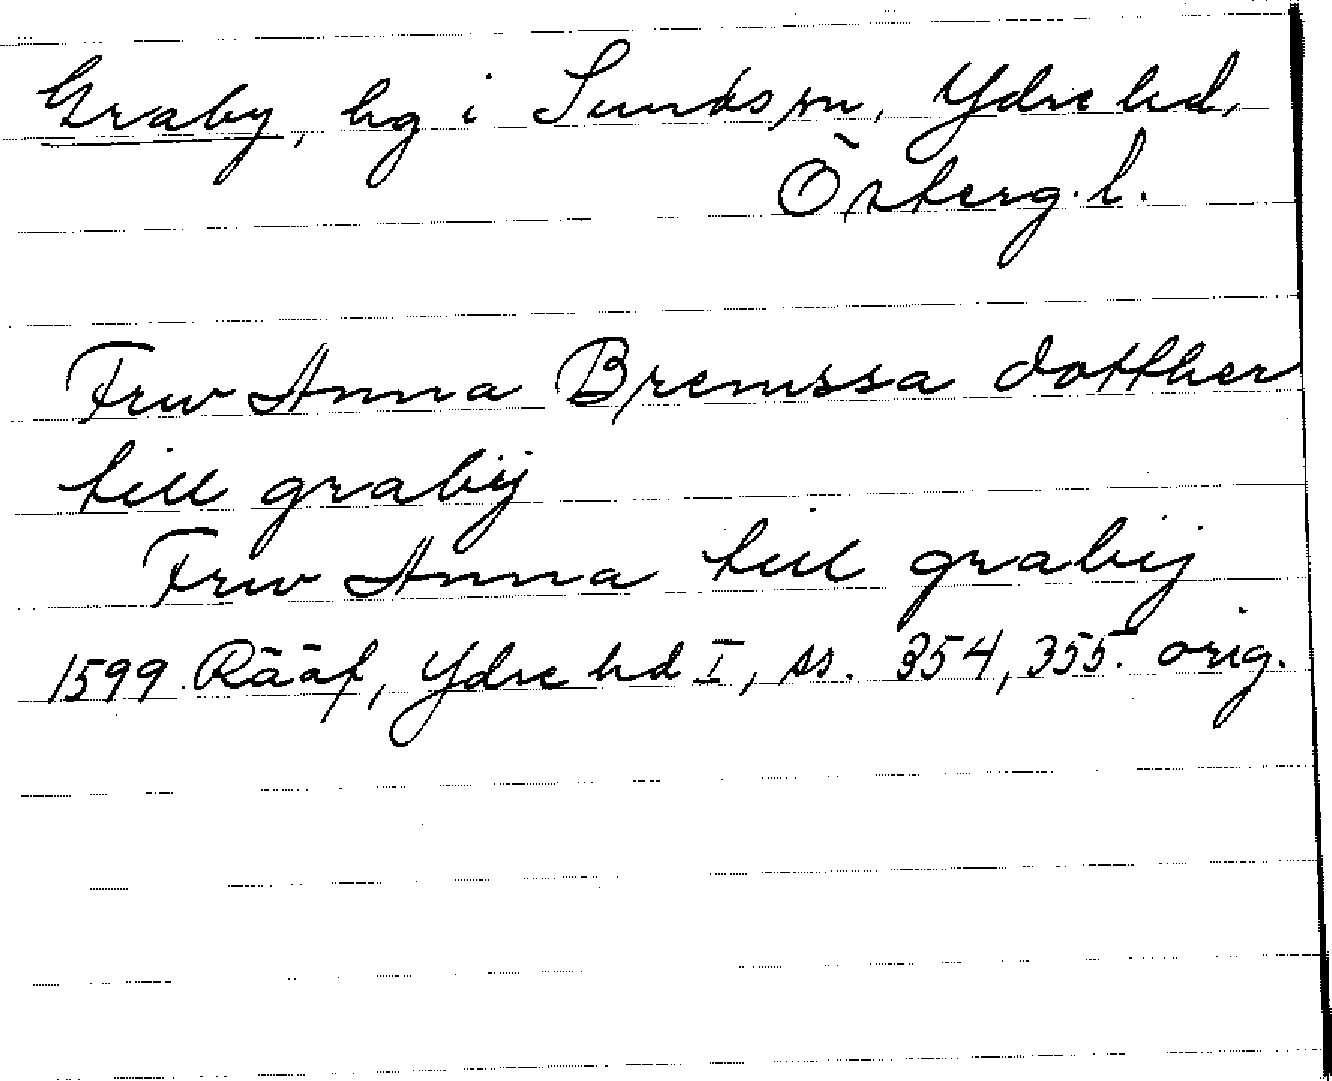 Graby, hg i Sunds sn, Ydre hd,
Österg. l.
Frw Anna Bremssa dotther
till grabÿ
Frw Anna till grabÿ
1599 Rääf, Ydre hd I, ss. 354, 355. orig.